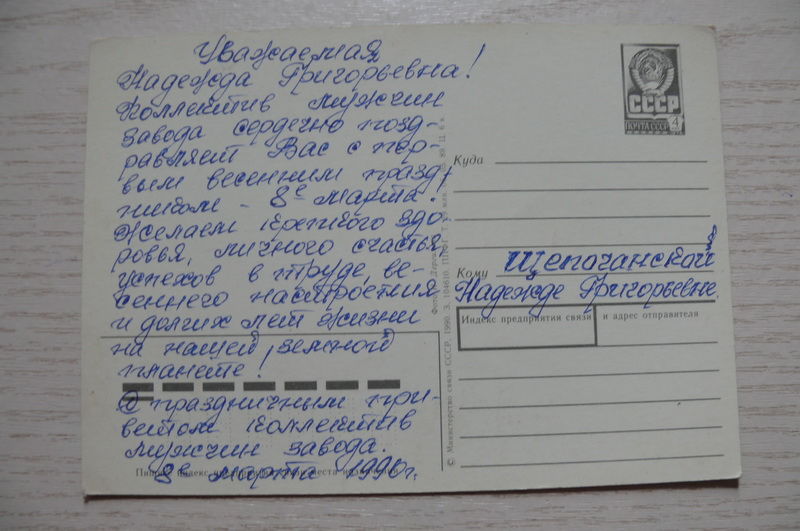 Уважаемая
Надежда Григорьевна!
Коллектив мужчин
завода сердечно позд-
равляет Вас с пер-
вым весенним празд-
ником - 8е марта.
Желаем крепкого здо-
ровья, личного счастья
успехов в труде, ве-
сеннего настроения
и долгих лет жизни
на нашей, земной
планете!
С праздничным при-
ветом коллектив
мужчин завода.
8е марта 1990г.
СССР
ПОЧТА СССР 4
Куда
Кому Щепочанской
Надежде Григорьевне.
Индекс предприятия связи и адрес отправителя
© Министерство связи СССР, 1990. З.